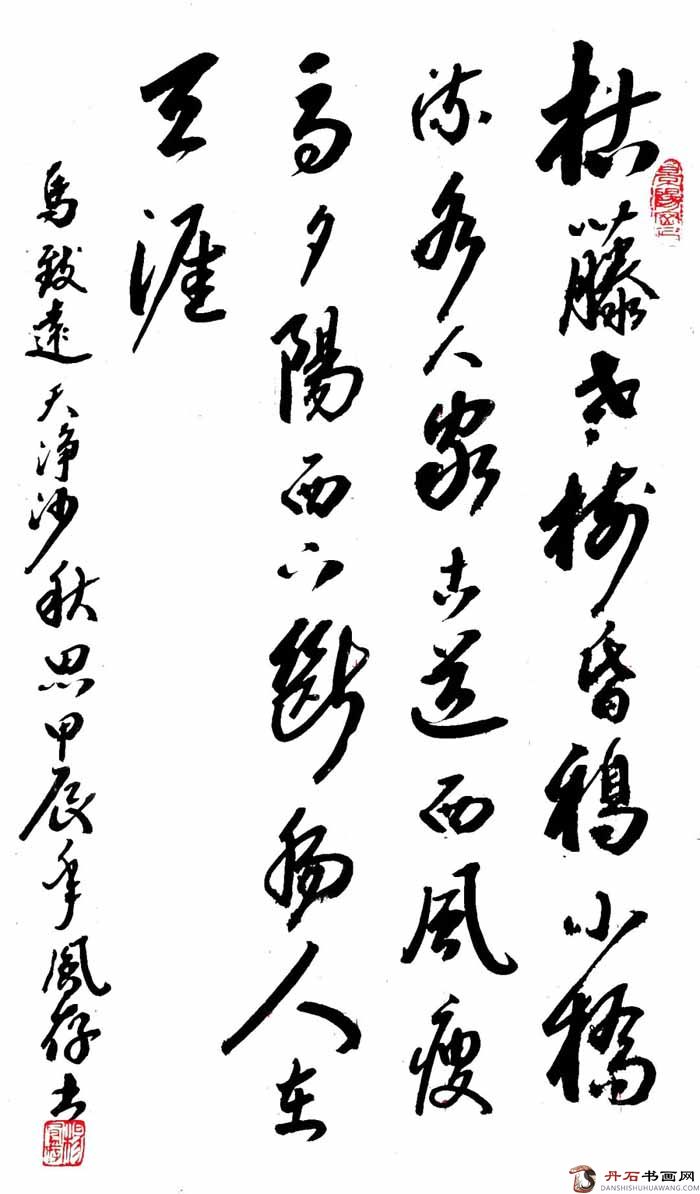 枯藤老樹昏鴉小橋
流水人家古道西風瘦
馬夕陽西下斷腸人在
天涯
馬致遠天淨沙秋思甲辰年風存书
丹石书画网
DANSHISHUHUAWANG.COM